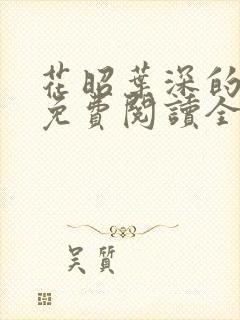 花昭葉深的
免費閱讀全
吴質